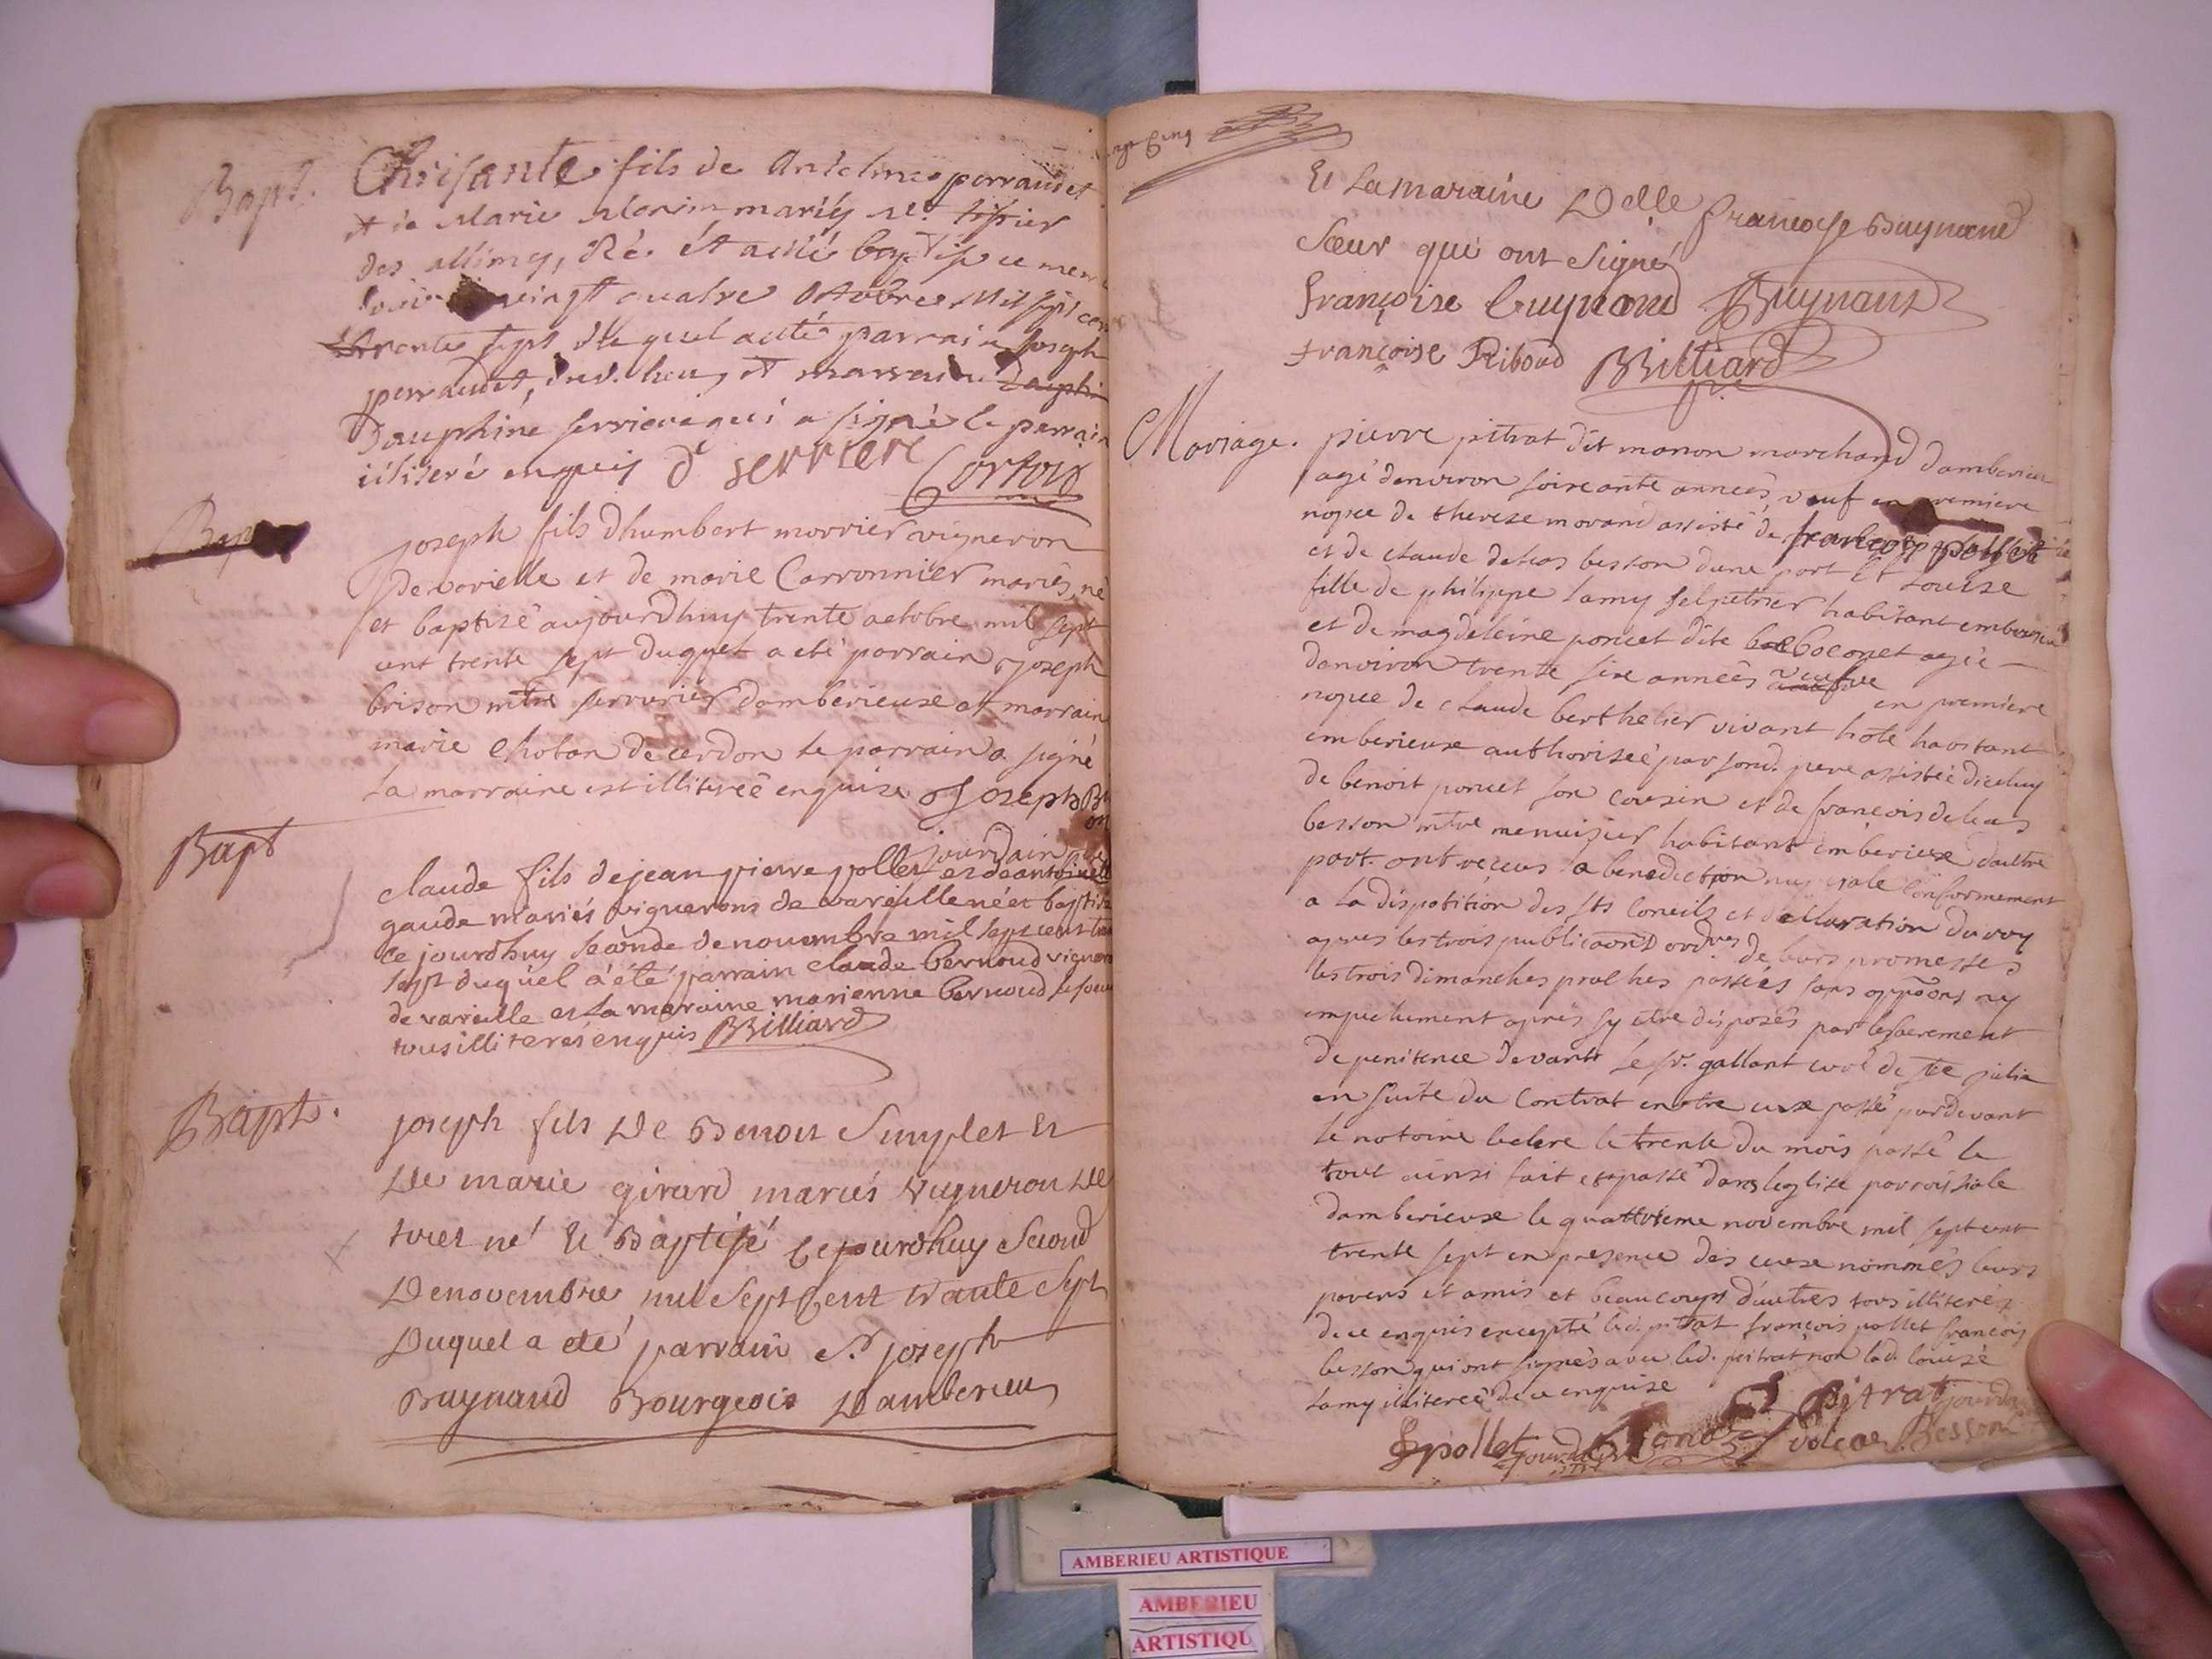 Bapt. Chrisante fils de Antelme perraudet
et de Marie Morin mariés
des allimes, Né et a esté baptisé ce
vingt quatre Octobre Mil sept cent
trente sept duquel a esté parrain Joseph
perraudet, dud. lieu, et marraine
Dauphine serriere qui a signé le parrain
illiteré enquis d serriere Cortois
Bapt
joseph fils dhumbert morrier vigneron
de vareille et de marie Carronnier mariés, né
et baptizé aujourdhuy trente octobre mil sept
cent trente sept duquel a eté parrain Joseph
brison mtre serrurier damberieux et marraine
marie chotan de cerdon le parrain a signé
la marraine est illitereé enquise Joseph Bri
on
Bapt
jourdain
claude fils de jean pierre pollet et de antoinette
gaude mariés vignerons de vareille né et baptizé
ce jourdhuy seconde de novembre mil sept cent trente
sept duquel a été parrain claude bernoud vigneron
de vareille et la maraine marienne bernoud
tous illiterés enquis Billiard
Bapt. joseph fils De Benoit Simplet Et
De marie girard mariés vigneron De
tiret né Et Baptisé Cejourdhuy Second
De novembre mil Sept Cent trante Sept
Duquel a eté parrain Sr joseph
Buynand Bourgeois Damberieu
Cinq
Et La maraine Delle françoise Buynand
Sœur qui ont Signé
françoise buynand Buynand
françoise Riboud Billiard
Mariage. pierre pitrat dit manon marchand damberieu
agé denviron soixante années, veuf en premiere
nopce de therese morand assisté de francois pollet
et de claude deleas besson dune part et Louise
fille de philippe lamy selpetrier habitant emberieu
et de magdeleine poncet dite boconet agée
denviron trente six années veufve en première
nopce de claude berthelier vivant hote habitant
emberieux authorisée par sond. pere assistée diceluy
de benoit poncet son cousin et de francois deleas
besson mtre menuisier habitant emberieux dautre
part. ont receus la benediction nuptiale conformement
a la disposition des sts Conciles et declaration du roy
apres les trois publicaons ordres de leurs promesses
les trois dimanches prosches passées sans oppoons ny
empechement aprés sy etre disposés par le sacrement
de penitence devant le sr. gallant curé de ste julie
en suite du Contrat entre eux passé pardevant
le notaire leclerc le trente du mois passé le
tout ainsi fait et passé dans leglise parroissiale
damberieux le quattrieme novembre mil sept cent
trente sept en presence des ceux nommés leurs
parens et amis et beaucoup dautres tous illiterés
de ce enquis excepté led. pitrat françois pollet françois
besson qui ont signés avec led. pitrat non lad. louise
lamy illitereé de ce enquise
pitrat
pollet deleas Besson
AMBERIEU ARTISTIQUE
AMBERIEU
ARTISTIQU